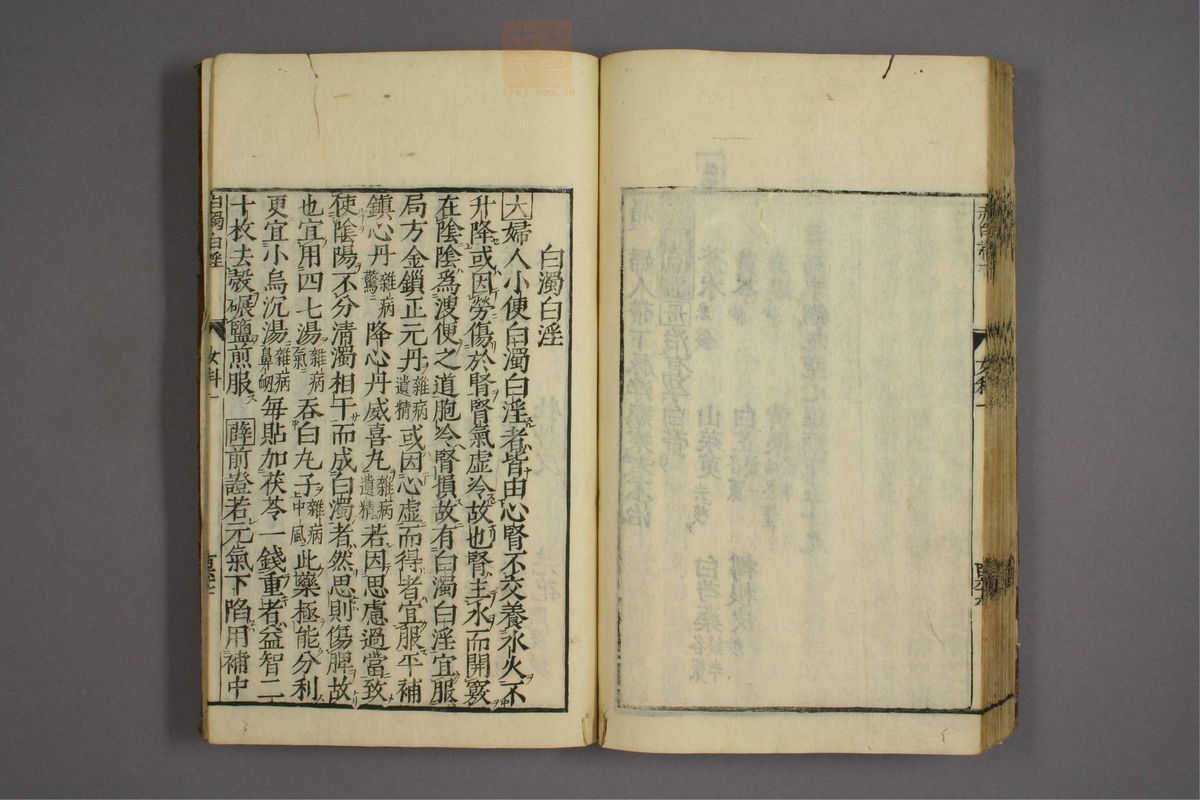 白濁白淫
大婦人小便白濁白淫者皆由心腎不交養水火不
升降或因勞傷於腎腎氣虛冷故也腎主水而開竅
在陰陰爲溲便之道胞冷腎損故有白濁白淫宜服
局方金鎖正元丹雜病遺精或因心虛而得者宜服平補
鎮心丹雜病驚降心丹威喜丸雜病遺精若因思慮過當致
使陰陽不分清濁相干而成白濁者然思則傷脾故
也宜用四七湯雜病氣吞白丸子雜病上中風此藥極能分利
更宜小烏沉湯雜病鼻衂每貼加茯苓一錢重者益智二
十枚去殼碾鹽煎服 薛前證若元氣下陷用補中
白濁白淫
女科一
女科一